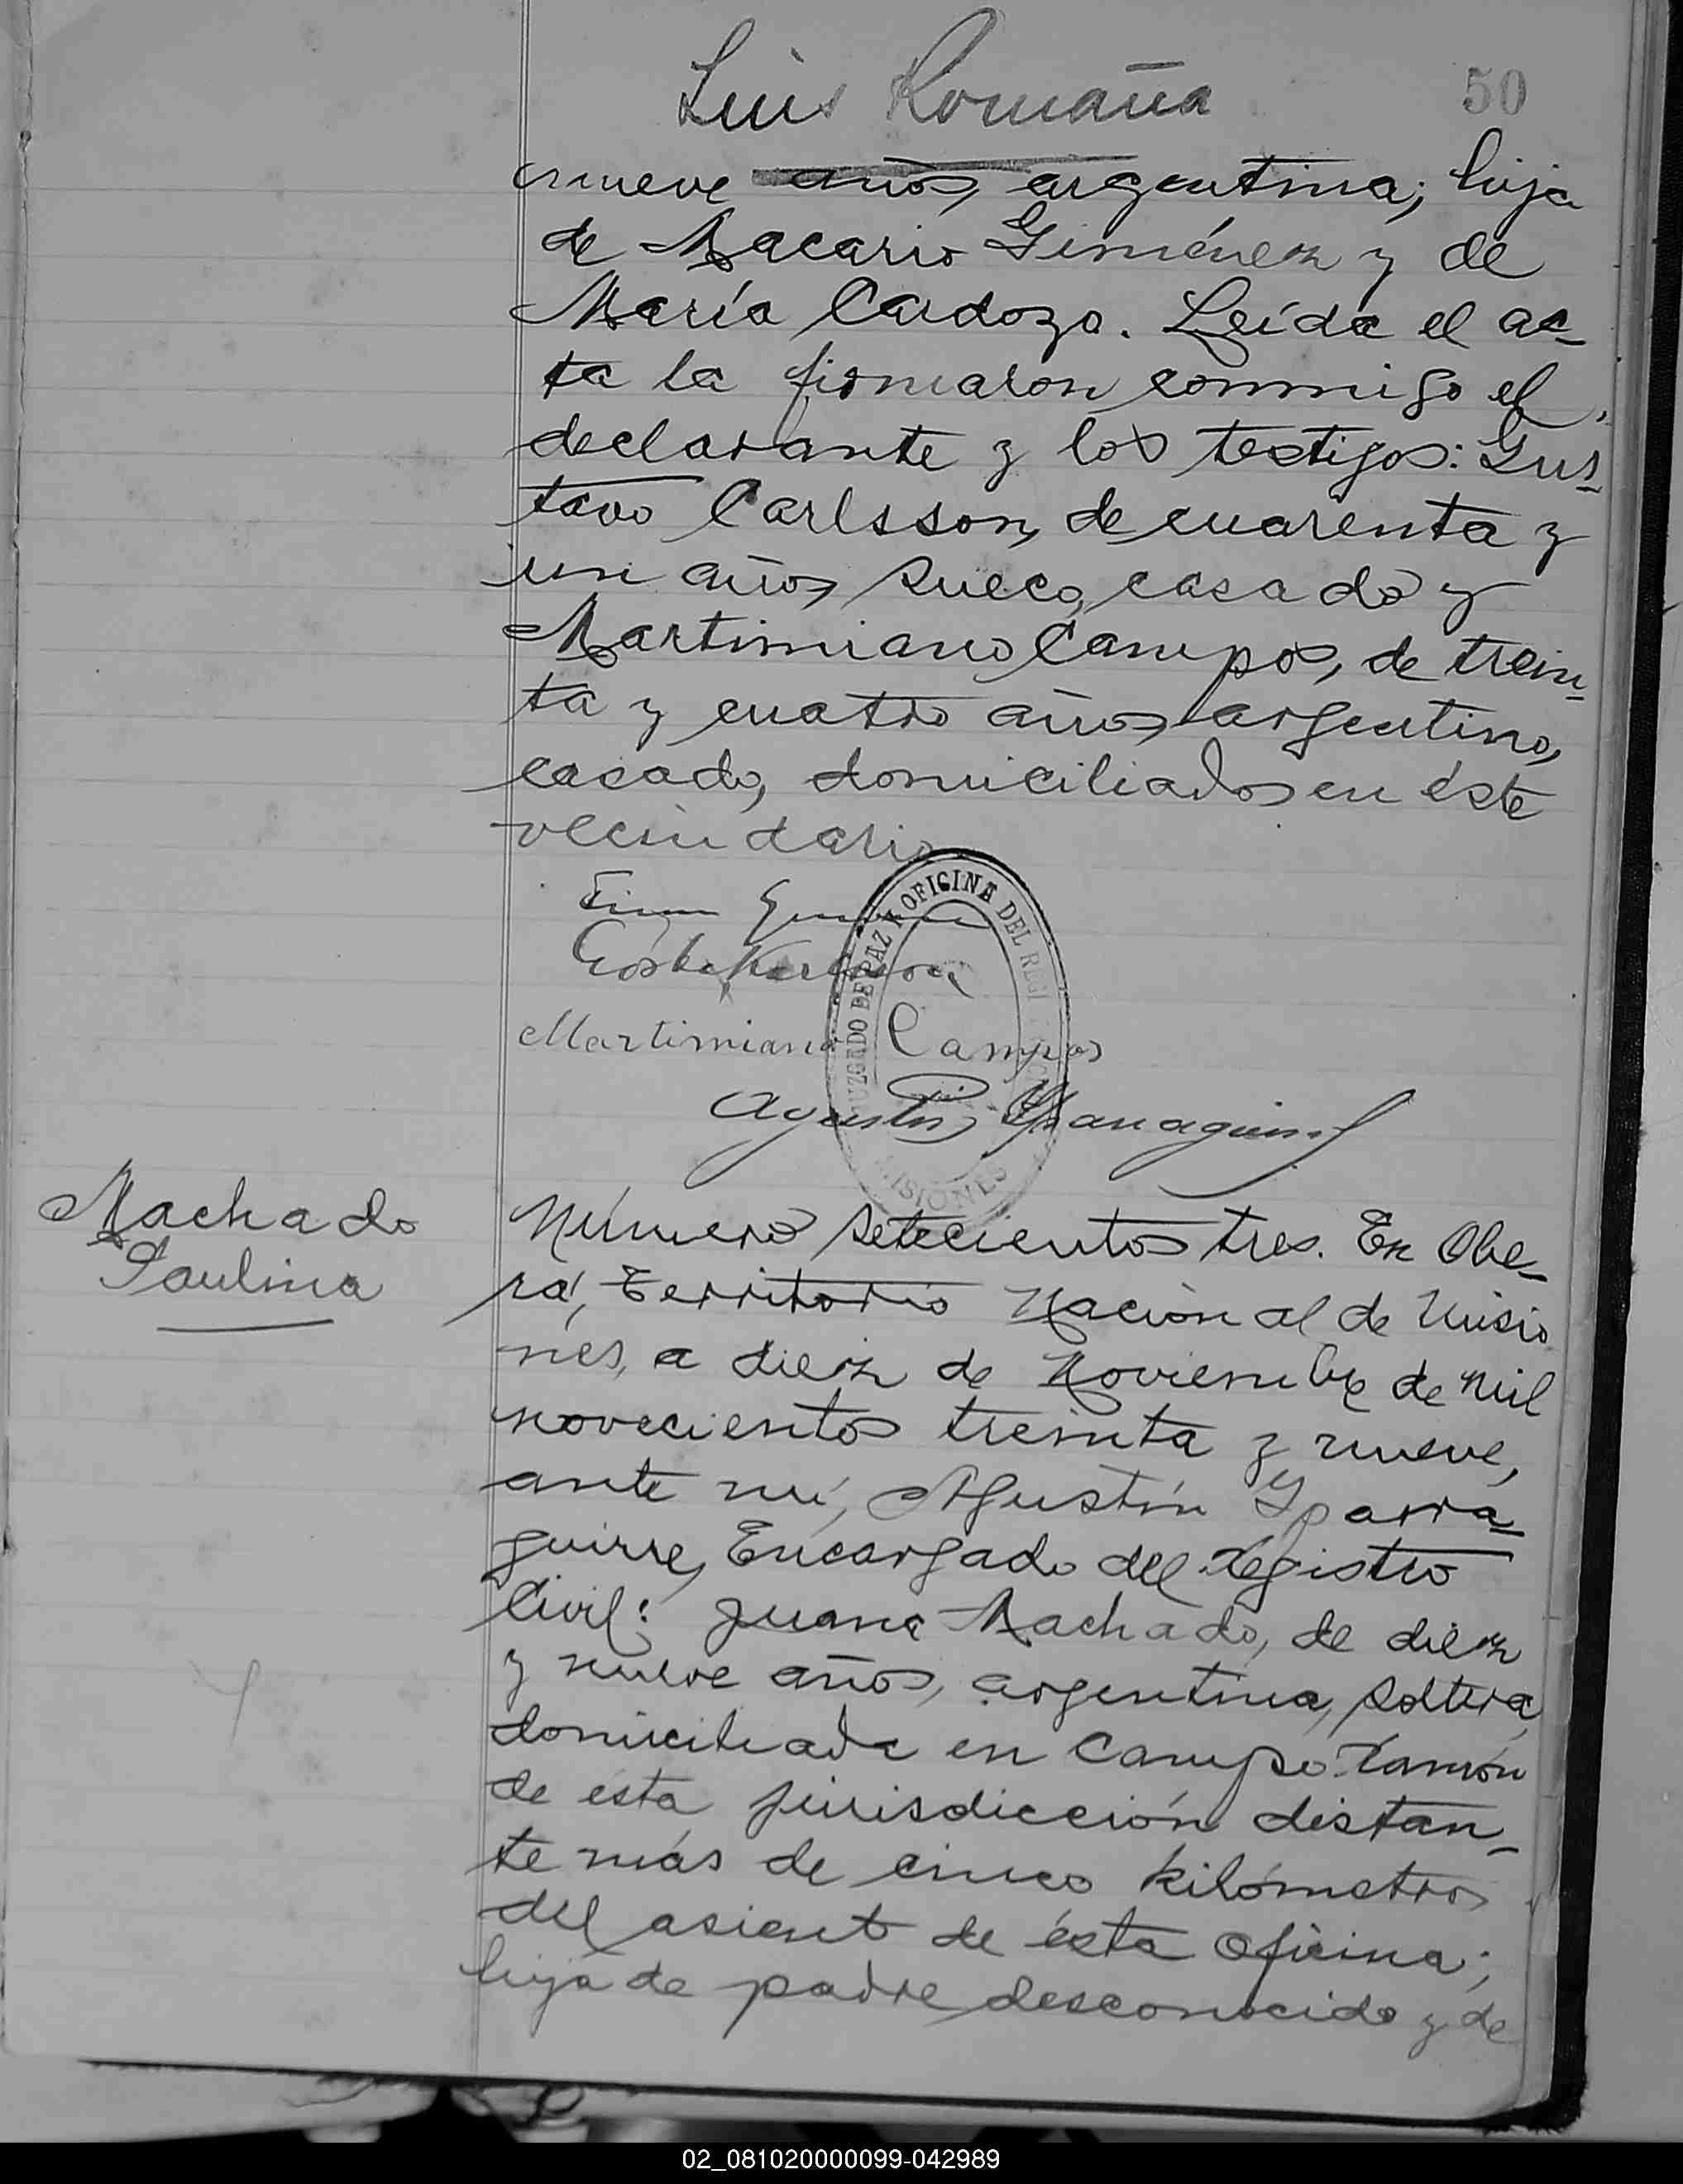 Luis Romaña
50
nueve años, argentina; hija
de Macario Giménez y de
María Cardozo. Leída el ac-
ta la firmaron conmigo el
declarante y los testigos: Gus-
tavo Carlsson, de cuarenta y
un años, sueco, casado y
Martimiano Campos, de trein-
ta y cuatro años, argentino,
casado, domiciliados en éste
vecindario
JUZGADO DE PAZ Y OFICINA DEL REGI
MISIONES
Martimiano Campos
Agustín Yparraguirre
Machado
Paulina
Número setecientos tres. En Obe-
rá, Territorio Nacional de Misio
nes, a diez de Noviembre de mil
novecientos treinta y nueve,
ante mí, Agustín Yparra-
guirre, Encargado del Registro
Civil: Juana Machado, de diez
y nueve años, argentina, soltera,
domiciliada en Campo Ramón
de esta jurisdicción distan-
te más de cinco kilómetros
del asiento de ésta Oficina;
hija de padre desconocido y de
02_081020000099-042989